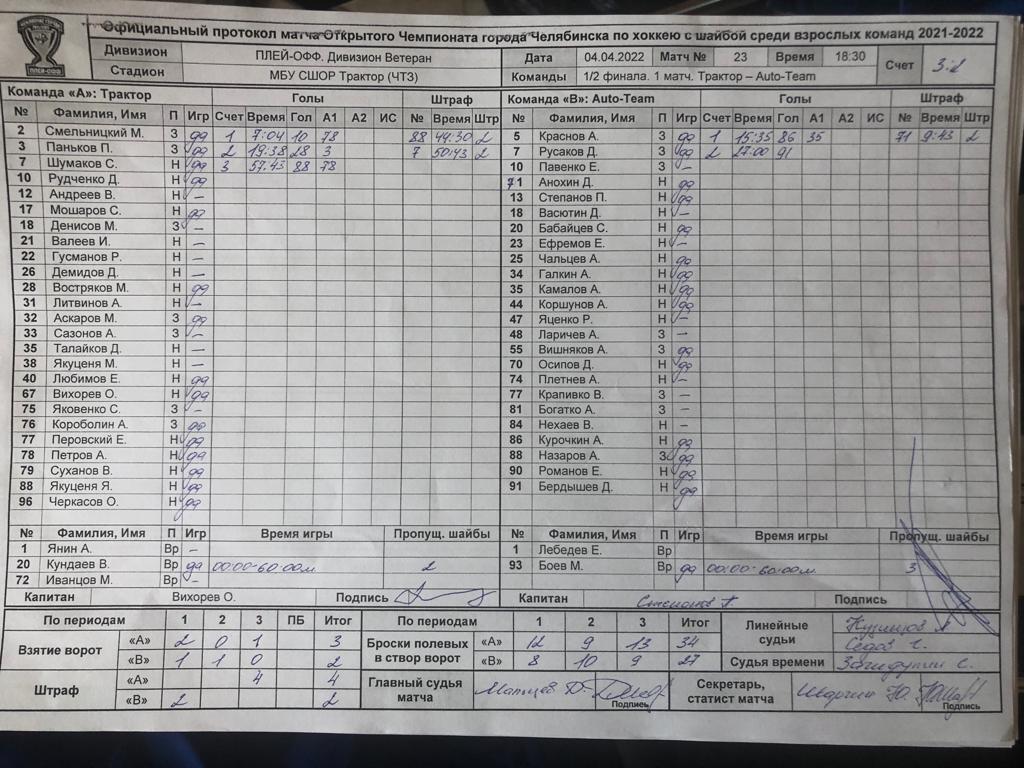 Официальный протокол матча Открытого Чемпионата города Челябинска по хоккею с шайбой среди взрослых команд 2021-2022
ПЛЕЙ-ОФФ
Дивизион ПЛЕЙ-ОФФ. Дивизион Ветеран Дата 04.04.2022 Матч № 23 Время 18:30 Счет 3:2
Стадион МБУ СШОР Трактор (ЧТЗ) Команды 1/2 финала. 1 матч. Трактор – Auto-Team
Команда «А»: Трактор Голы Штраф Команда «В»: Auto-Team Голы Штраф
№ Фамилия, Имя П Игр Счет Время Гол А1 А2 ИС № Время Штр № Фамилия, Имя П Игр Счет Время Гол А1 А2 ИС № Время Штр
2 Смельницкий М. З да 1 7:04 10 78 88 44:30 2 5 Краснов А. З да 1 15:35 86 35 71 9:43 2
3 Паньков П. З да 2 19:38 28 3 7 50:43 2 7 Русаков Д. З да 2 27:00 91
7 Шумаков С. Н да 3 57:43 88 78 10 Павенко Е. З –
10 Рудченко Д. Н да 71 Анохин Д. Н да
12 Андреев В. Н – 13 Степанов П. Н да
17 Мошаров С. Н да 18 Васютин Д. Н –
18 Денисов М. З – 20 Бабайцев С. Н да
21 Валеев И. Н – 23 Ефремов Е. Н –
22 Гусманов Р. Н – 25 Чальцев А. Н да
26 Демидов Д. Н – 34 Галкин А. Н да
28 Востряков М. Н да 35 Камалов А. Н да
31 Литвинов А. Н – 44 Коршунов А. Н да
32 Аскаров М. З да 47 Яценко Р. Н –
33 Сазонов А. З – 48 Ларичев А. З –
35 Талайков Д. Н – 55 Вишняков А. З да
38 Якуценя М. Н – 70 Осипов Д. Н да
40 Любимов Е. Н да 74 Плетнев А. Н –
67 Вихорев О. Н да 77 Крапивко В. З –
75 Яковенко С. З – 81 Богатко А. З –
76 Короболин А. З да 84 Нехаев В. Н –
77 Перовский Е. Н да 86 Курочкин А. Н да
78 Петров А. Н да 88 Назаров А. З да
79 Суханов В. Н да 90 Романов Е. Н да
88 Якуценя Я. Н да 91 Бердышев Д. Н да
96 Черкасов О. Н да
№ Фамилия, Имя П Игр Время игры Пропущ. шайбы № Фамилия, Имя П Игр Время игры Пропущ. шайбы
1 Янин А. Вр – 1 Лебедев Е. Вр
20 Кундаев В. Вр да 00:00-60:00 2 93 Боев М. Вр да 00:00-60:00 3
72 Иванцов М. Вр –
Капитан Вихорев О. Подпись Капитан Степанов П. Подпись
По периодам 1 2 3 ПБ Итог По периодам 1 2 3 Итог Линейные судьи
Взятие ворот «А» 2 0 1 3 Броски полевых в створ ворот «А» 12 9 13 34
«В» 1 1 0 2 «В» 8 10 9 27 Судья времени
Штраф «А» 4 4 Главный судья матча Подпись Секретарь, статист матча Подпись
«В» 2 2